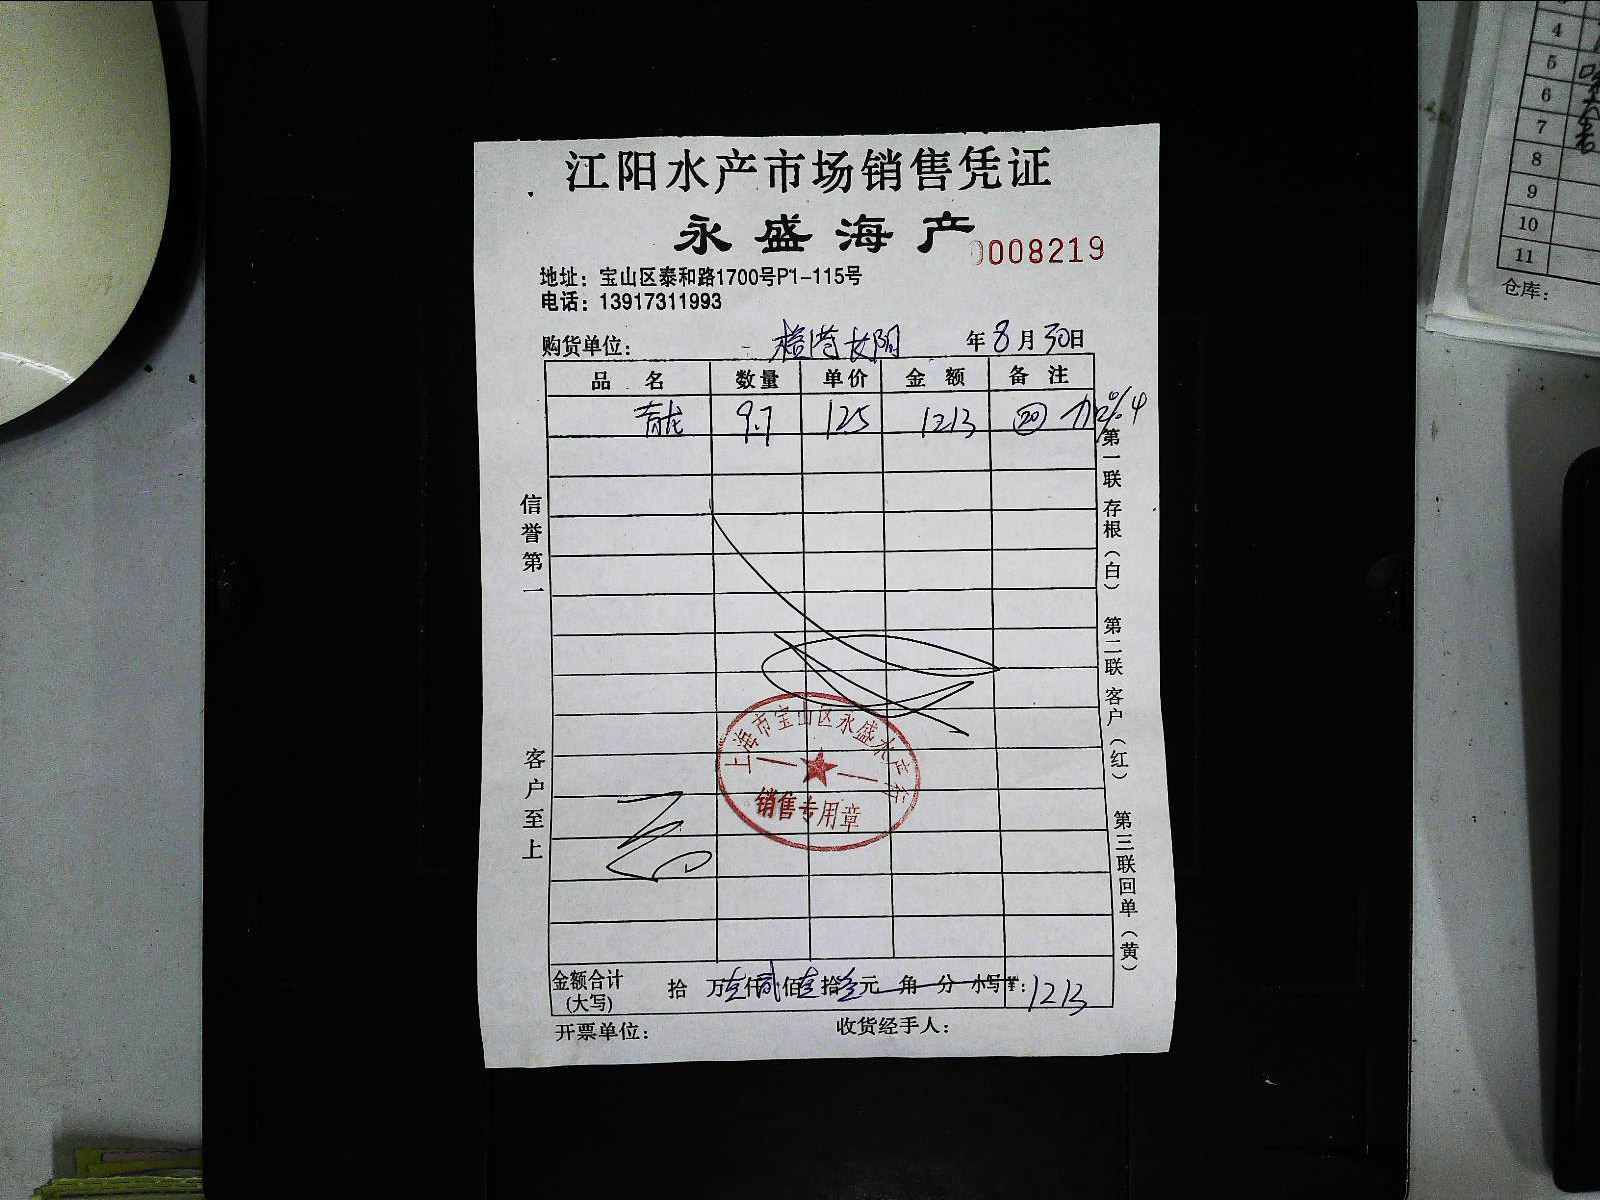 江阳水产市场销售凭证
永盛海产
0008219
地址：宝山区泰和路1700号P1-115号
电话：13917311993
购货单位： 年8月30日
品名 数量 单价 金额 备注
青龙 9.7 125 1213 20
信誉第一
客户至上
第一联存根（白）
第二联客户（红）
第三联回单（黄）
上海市宝山区永盛水产行
销售专用章
金额合计 拾 万壹仟贰佰壹拾叁元 角 分 小写¥：1213
(大写)
开票单位： 收货经手人：
4
5
6
7
8
9
10
11
仓库：